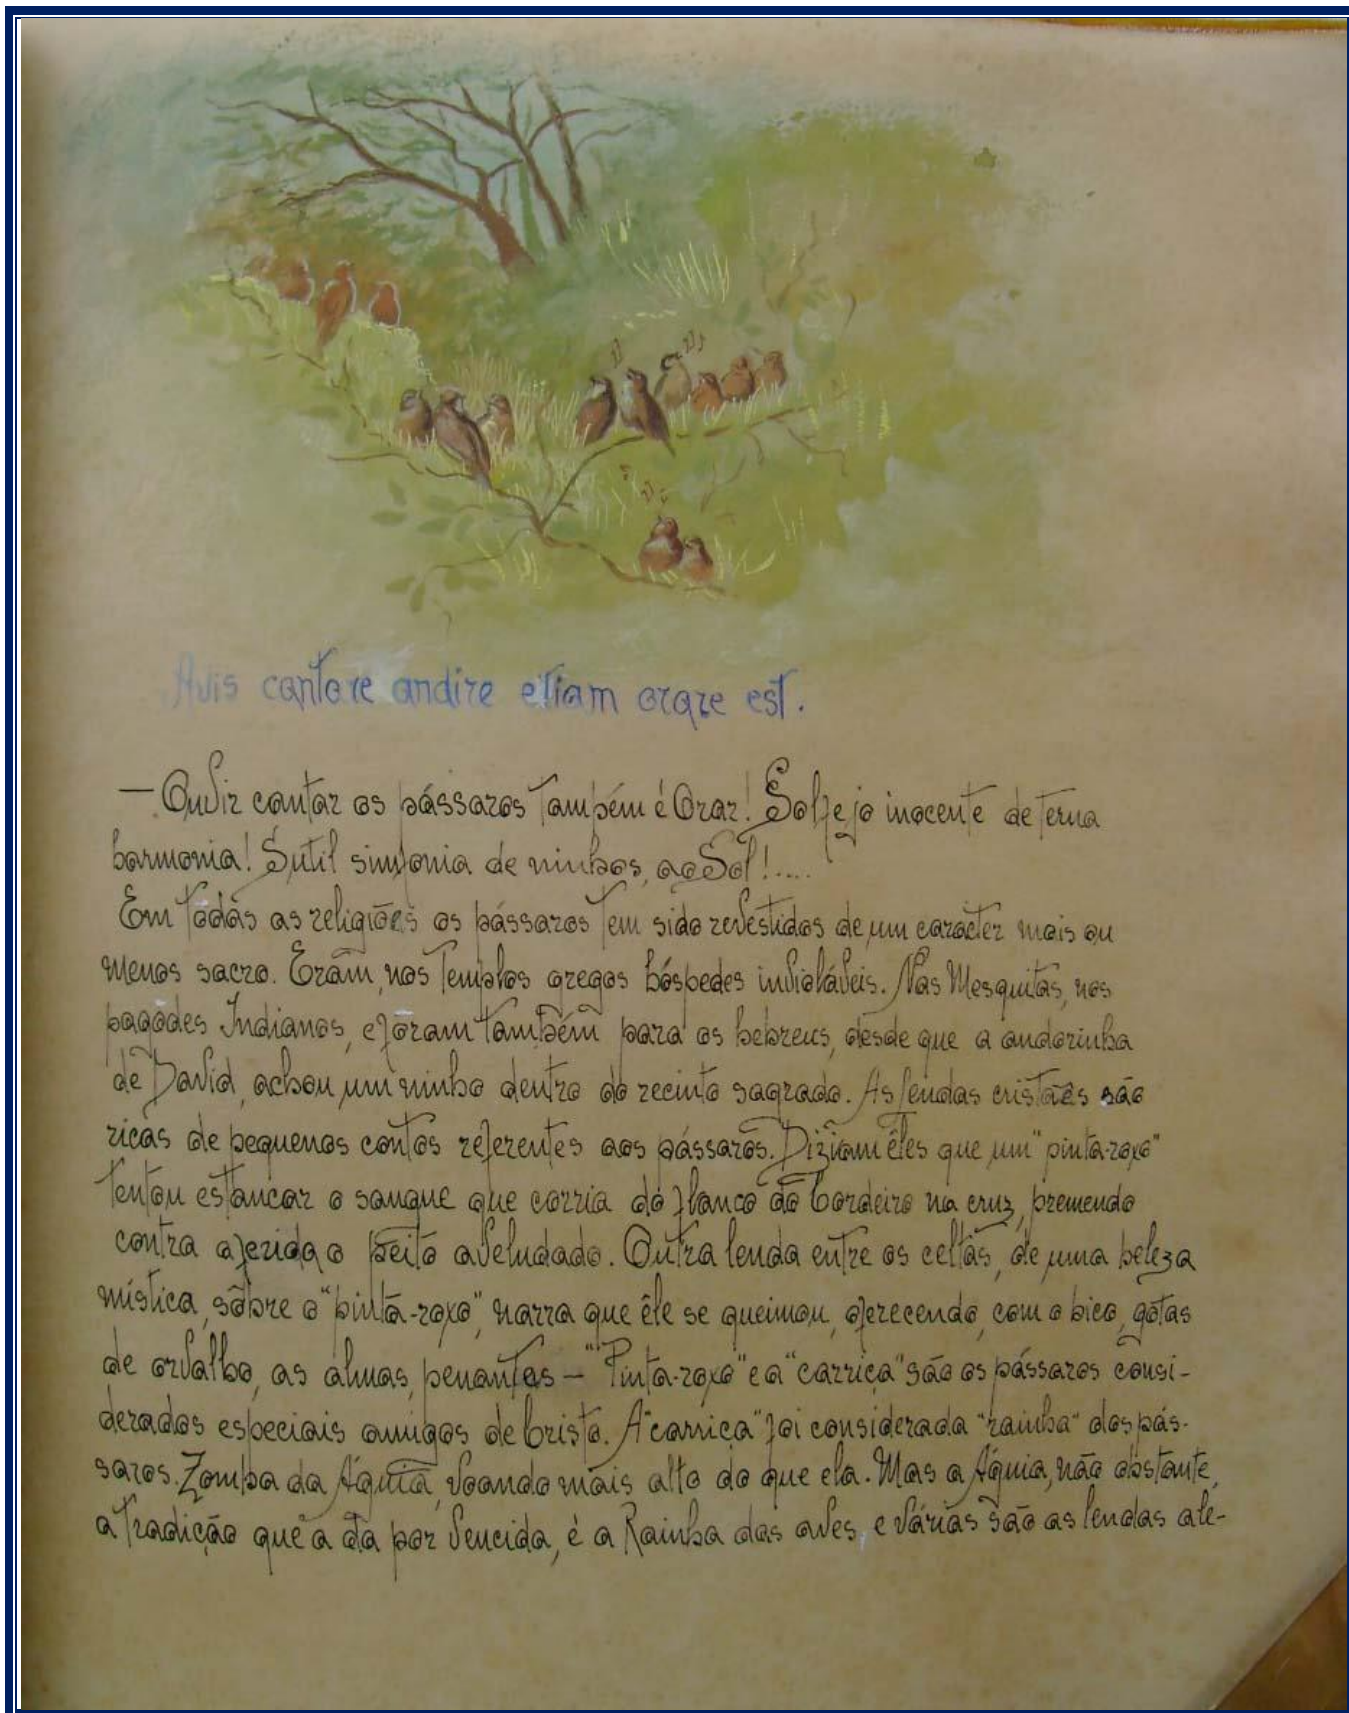 Avis cantare andire etiam orare est.
— Ouvir cantar os pássaros também é Orar! Solfejo inocente de terna
harmonia! Sutil sinfonia de ninhos, ao Sol!....
Em todas as religiões os pássaros tem sido revestidos de um carácter mais ou
menos sacro. Eram, nos Templos gregos hóspedes invioláveis. Nas Mesquitas, nos
pagodes Indianos, e foram também para os hebreus, desde que a andorinha
de David, achou um ninho dentro do recinto sagrado. As lendas cristães são
ricas de pequenos contos referentes aos pássaros. Diziam êles que um "pinta-roxo"
tentou estancar o sangue que corria do flanco do Cordeiro na cruz, premendo
contra a ferida o peito aveludado. Outra lenda entre os celtas, de uma beleza
mística, sôbre o "pinta-roxo", narra que êle se queimou, oferecendo, com o bico, gotas
de orvalho, as almas, penantes — "Pinta-roxo" e a "carriça" são os pássaros consi-
derados especiais amigos de Cristo. A "carriça" foi considerada "rainha" dos pás-
saros. Zomba da Águia, voando mais alto do que ela. Mas a Águia, não obstante,
a tradição que a da por vencida, é a Rainha das aves, e várias são as lendas ale-